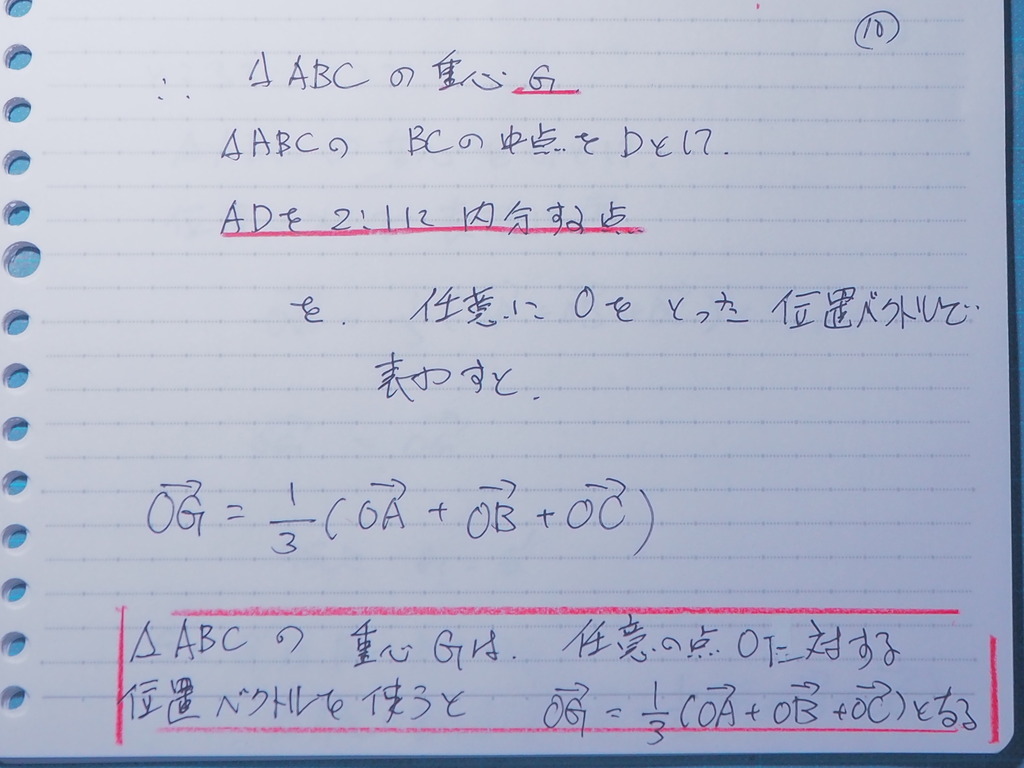 ⑩
∴ △ABCの重心G
△ABCの BCの中点をDとして.
ADを2:1に内分する点
を. 任意にOをとった位置ベクトルで
表わすと.
$\overrightarrow{OG} = \frac{1}{3}(\overrightarrow{OA} + \overrightarrow{OB} + \overrightarrow{OC})$
△ABCの重心Gは. 任意の点Oに対する
位置ベクトルを使うと $\overrightarrow{OG} = \frac{1}{3}(\overrightarrow{OA} + \overrightarrow{OB} + \overrightarrow{OC})$となる